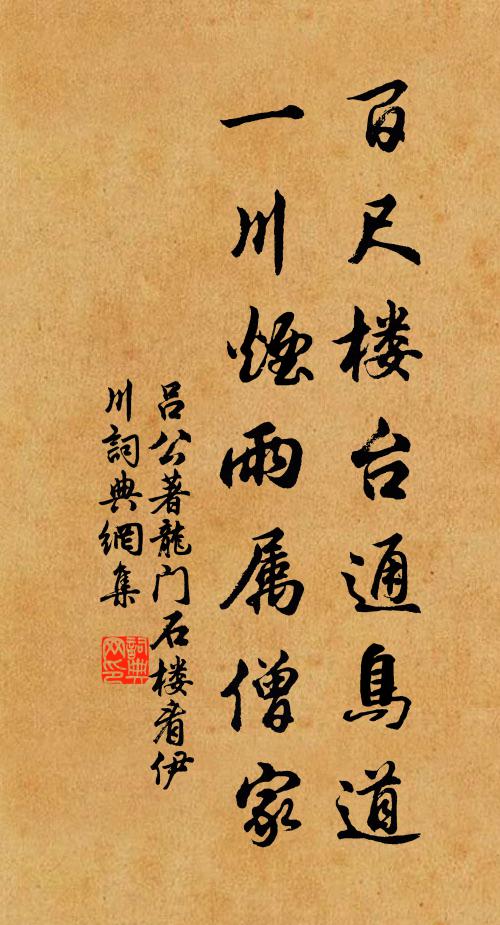 百尺楼台通鳥道
一川煙雨属僧家
吕公著龍门石楼看伊
川詞典網集
詞典
网印